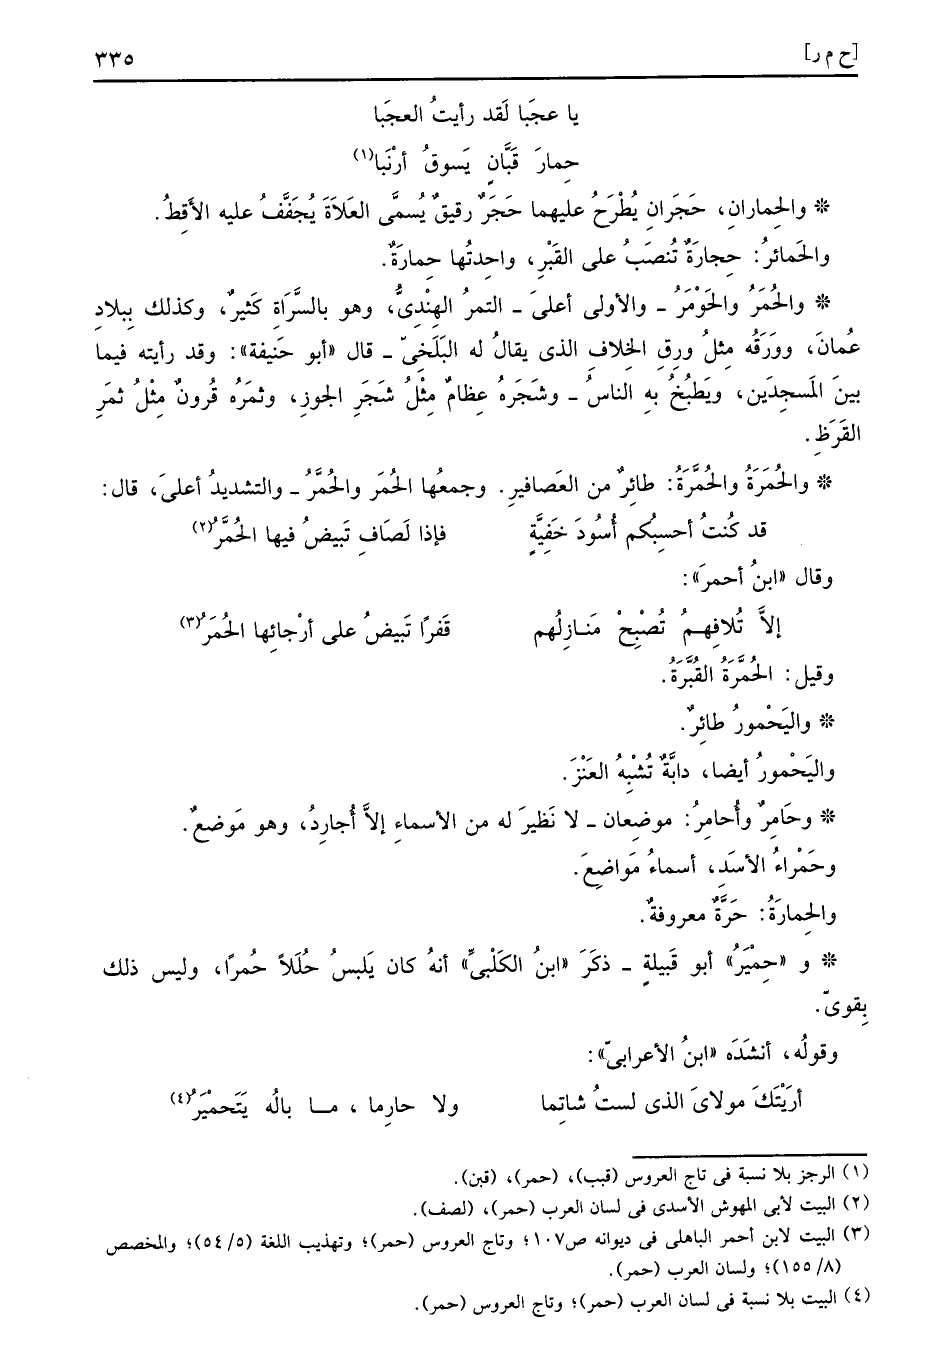 [ح م ر] ٣٣٥
يا عجَبا لَقد رأيتُ العجَبا
حِمارَ قَبَّانٍ يَسوقُ أرْنَبا(١)
* والحِماران، حَجَران يُطْرَحُ عليهما حَجَرٌ رقيقٌ يُسمَّى العَلاَةَ يُجَفَّفُ عليه الأَقِطُ.
والحَمائرُ: حِجارَةٌ تُنصَبُ على القَبْرِ، واحِدتُها حِمارَةٌ.
* والحُمَرُ والحَوْمَرُ ـ والأولى أعلىَ ـ التمرُ الهِنْدِىُّ، وهو بالسَّرَاةِ كَثيرٌ، وكذلك ببلادِ
عُمانَ، وورَقُه مِثلُ ورقِ الخِلافِ الذى يقالُ له البَلَخىّ ـ قال «أبو حَنيفة»: وقد رأيته فيما
بينَ المَسجِدَين، ويَطبُخُ بهِ الناسُ ـ وشَجَرَهُ عِظامٌ مِثْلُ شَجَرِ الجوزِ، وثمَرُه قُرونٌ مِثْلُ ثمَرِ
القَرَظِ.
* والحُمَرَةُ والحُمَّرَةُ: طائرٌ من العَصافيرِ. وجمعُها الحُمَر والحُمَّرُ ـ والتشديدُ أعلىَ، قال:
قد كُنتُ أحسِبُكم أُسُودَ خَفِيَّةٍ فإذا لَصَافِ تَبيضُ فيها الحُمَّرُ(٢)
وقال «ابنُ أحمرَ»:
إلاَّ تُلافِهـمُ تُصْبِحْ مَنـازِلُهم قَفرًا تَبيضُ على أرْجائِها الحُمَرُ(٣)
وقيل: الحُمَّرَةُ القُبَّرَةُ.
* واليَحْمورُ طائِرٌ.
واليَحْمورُ أيضا، دابَّةٌ تُشْبِهُ العَنْزَ.
* وحَامِرٌ وأُحامِرُ: موضِعان ـ لا نَظيرَ له من الأسماءِ إلاَّ أُجارِدُ، وهو مَوضعٌ.
وحَمْراءُ الأسَدِ، أسماءُ مَواضِعَ.
والحِمارَةُ: حَرَّةٌ معروفةٌ.
* و «حِمْيَرُ» أبو قَبيلةٍ ـ ذكَرَ «ابنُ الكَلْبىِّ» أنهُ كان يَلبسُ حُلَلاً حُمرًا، وليس ذلك
بِقوىّ.
وقولُه، أنشَدَه «ابنُ الأعرابىّ»:
أرَيْتَكَ مولاىَ الذى لستُ شاتِما ولا حارِما، مـا بالُه يَتَحميَرُ(٤)
(١) الرجز بلا نسبة فى تاج العروس (قبب)، (حمر)، (قبن).
(٢) البيت لأبى المهوش الأسدى فى لسان العرب (حمر)، (لصف).
(٣) البيت لابن أحمر الباهلى فى ديوانه ص١٠٧؛ وتاج العروس (حمر)؛ وتهذيب اللغة (٥/ ٥٤)؛ والمخصص
(٨/ ١٥٥)؛ ولسان العرب (حمر).
(٤) البيت بلا نسبة فى لسان العرب (حمر)؛ وتاج العروس (حمر).